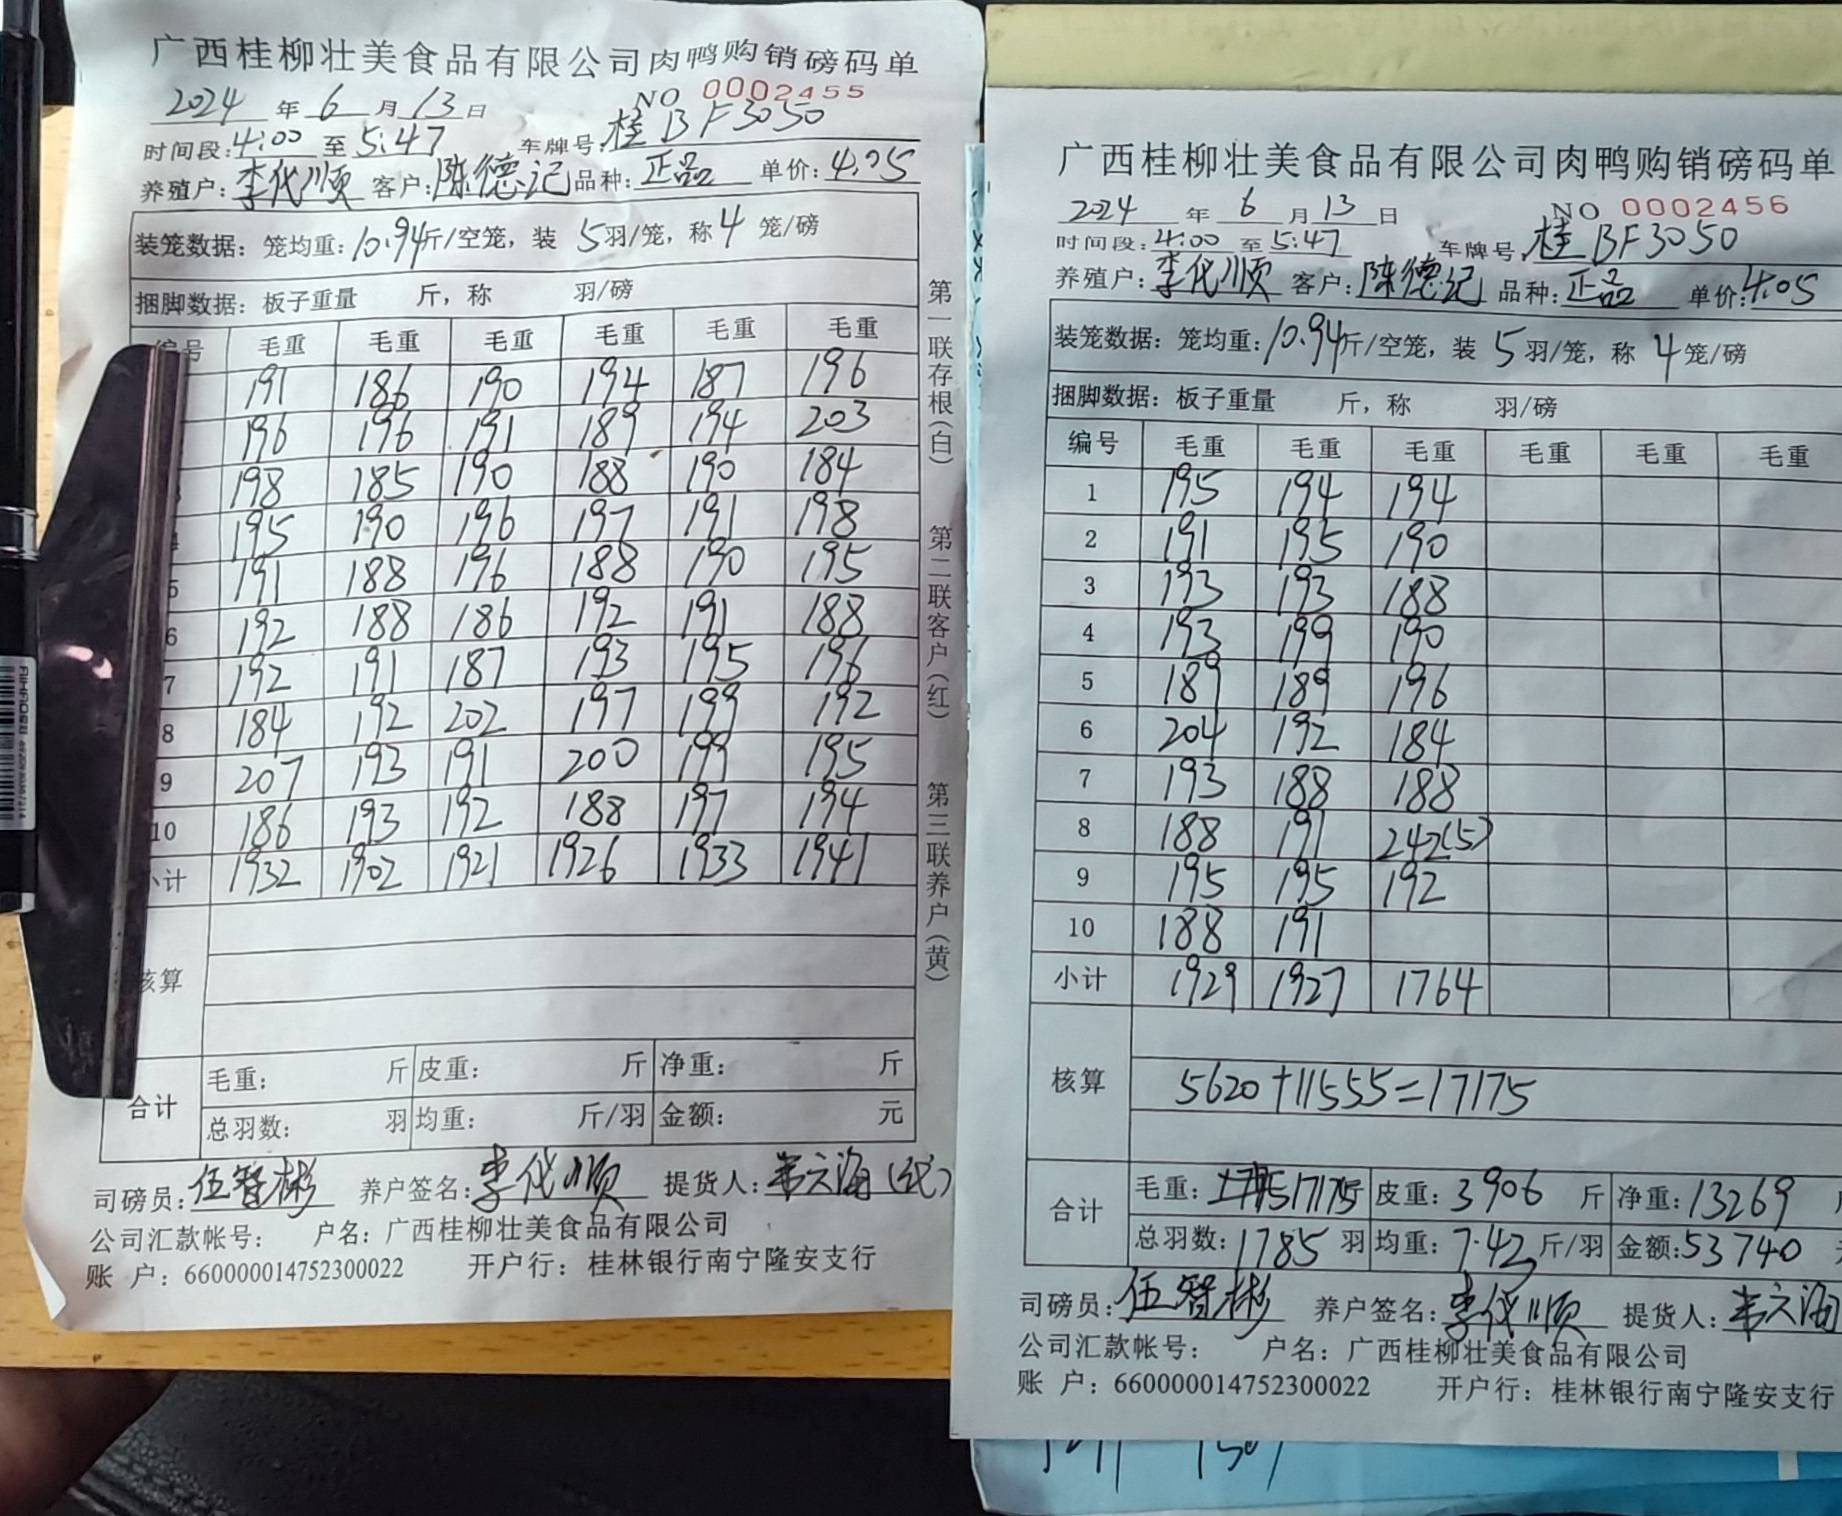 广西桂柳壮美食品有限公司肉鸭购销磅码单
2024 年 6 月 13 日 NO 0002455
时间段:4:00 至 5:47 车牌号:桂BF3050
养殖户:李代顺 客户:陈德记 品种:正品 单价:4.05
装笼数据:笼均重:10.94斤/空笼,装 5羽/笼,称4 笼/磅
捆脚数据:板子重量 斤,称 羽/磅
编号 毛重 毛重 毛重 毛重 毛重 毛重
191 186 190 194 187 196
196 196 191 189 194 203
198 185 190 188 190 184
195 190 196 197 191 198
5 191 188 196 188 190 195
6 192 188 186 192 191 188
7 192 191 187 193 195 196
8 184 192 202 197 199 192
9 207 193 191 200 199 195
10 186 193 192 188 197 194
小计 1932 1902 1921 1926 1933 1941
核算
合计 毛重: 斤 皮重: 斤 净重: 斤
总羽数: 羽 均重: 斤/羽 金额: 元
司磅员:伍智彬 养户签名:李代顺 提货人:韦六海(代)
公司汇款帐号: 户名:广西桂柳壮美食品有限公司
账 户:660000014752300022 开户行:桂林银行南宁隆安支行
第一联存根(白) 第二联客户(红) 第三联养户(黄)
广西桂柳壮美食品有限公司肉鸭购销磅码单
2024 年 6 月 13 日 NO 0002456
时间段:4:00 至 5:47 车牌号:桂BF3050
养殖户:李代顺 客户:陈德记 品种:正品 单价:4.05
装笼数据:笼均重:10.94斤/空笼,装 5羽/笼,称 4笼/磅
捆脚数据:板子重量 斤,称 羽/磅
编号 毛重 毛重 毛重 毛重 毛重 毛重
1 195 194 194
2 191 195 190
3 193 193 188
4 193 199 190
5 189 189 196
6 204 192 184
7 193 188 188
8 188 191 242(5)
9 195 195 192
10 188 191
小计 1929 1927 1764
核算 5620+11555=17175
合计 毛重: 17175 皮重:3906 斤 净重:13269
总羽数:1785 羽 均重:7.43 斤/羽 金额:53740
司磅员:伍智彬 养户签名:李代顺 提货人:韦六海
公司汇款帐号: 户名:广西桂柳壮美食品有限公司
账 户:660000014752300022 开户行:桂林银行南宁隆安支行